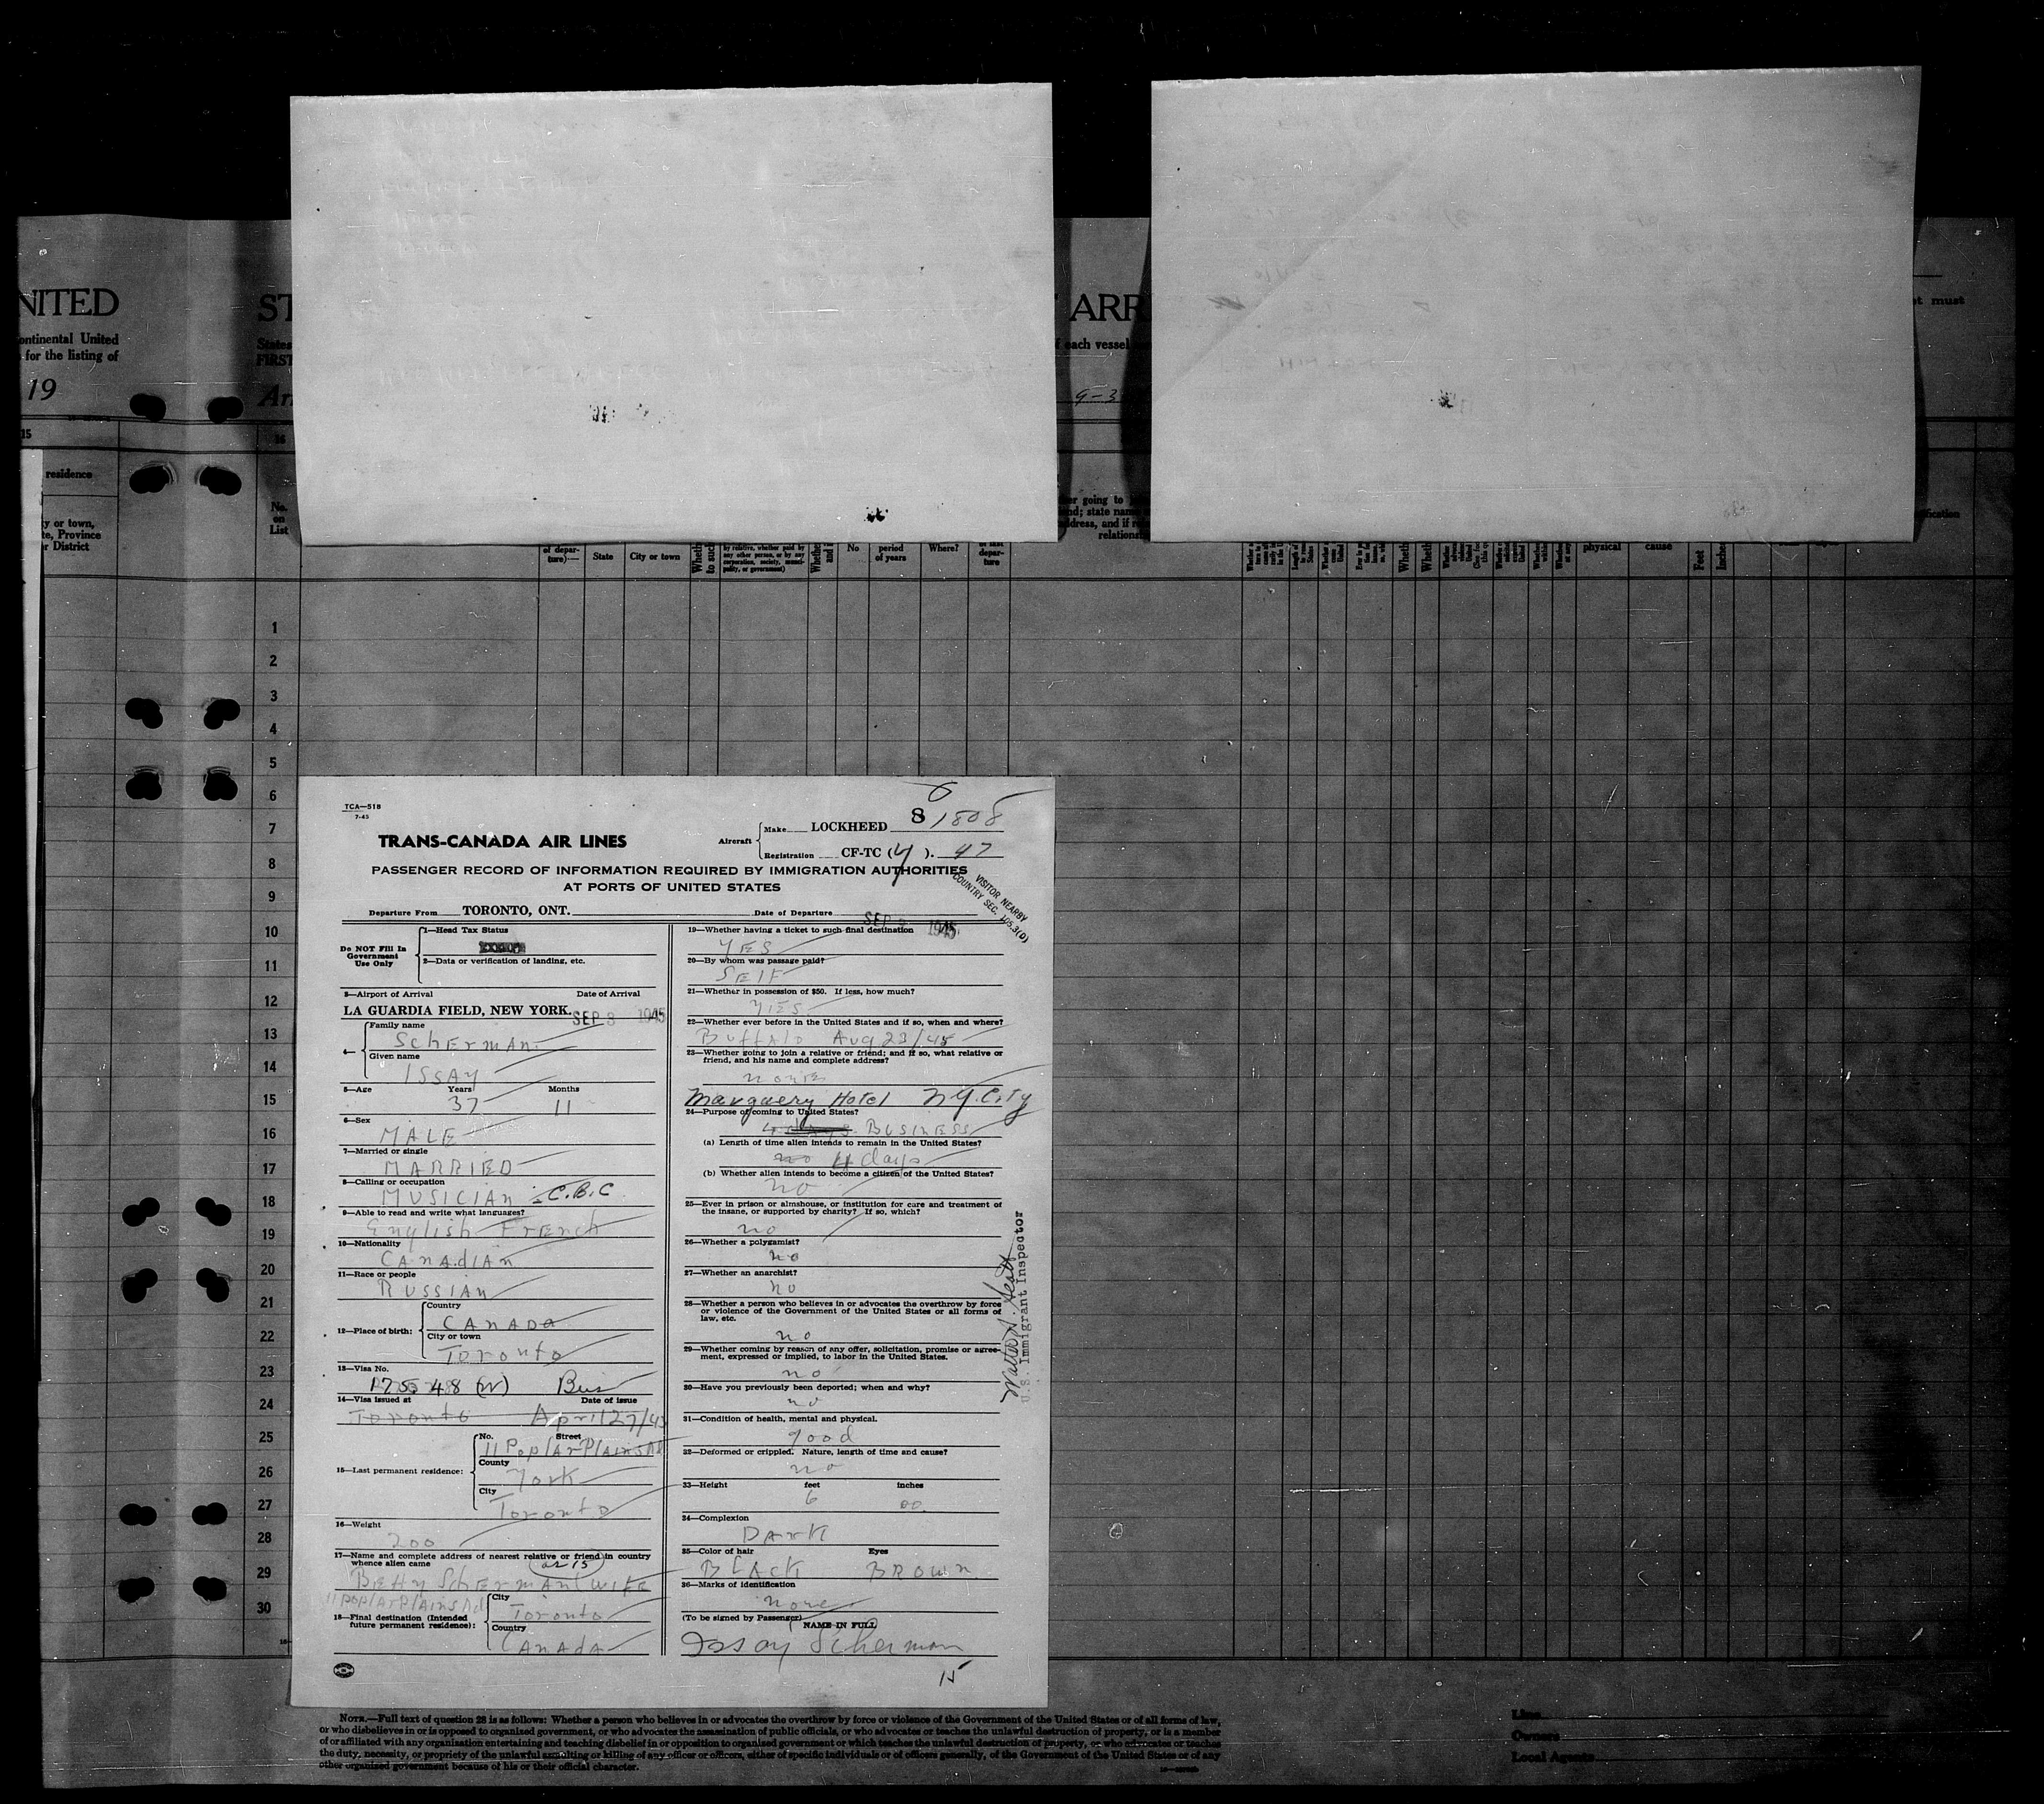 NITED
ST
ARR
t must
ontinental United
States
f each vessel
for the listing of
FIRST
19
Arr
9-3
15
16
residence
y or town,
te, Province
r District
No.
on
List
er going to
end; state name
ddress, and if re
relations
fication
of depar-
ture)—
State
City or town
Wheth
to such
by relative, whether paid by
any other person, or by any
corporation, society, munici-
pality, or government)
Whether
and i
No
period
of years
Where?
of last
depar-
ture
physical
cause
Feet
Inches
1
2
3
4
5
6
7
8
9
10
11
12
13
14
15
16
17
18
19
20
21
22
23
24
25
26
27
28
29
30
TCA—518
7-45
6
TRANS-CANADA AIR LINES
Aircraft
Make LOCKHEED 8 1808
Registration CF-TC (Y). 47
PASSENGER RECORD OF INFORMATION REQUIRED BY IMMIGRATION AUTHORITIES
AT PORTS OF UNITED STATES
VISITOR NEARBY
COUNTRY SEC. 105.3(D)
Departure From TORONTO, ONT. Date of Departure SEP 3 1945
Do NOT Fill In
Government
Use Only
1—Head Tax Status
2—Data or verification of landing, etc.
3—Airport of Arrival Date of Arrival
LA GUARDIA FIELD, NEW YORK. SEP 3 1945
4—
Family name
SCHERMAN
Given name
ISSAY
5—Age Years Months
37 11
6—Sex
MALE
7—Married or single
MARRIED
8—Calling or occupation
MUSICIAN - C.B.C
9—Able to read and write what languages?
English French
10—Nationality
CANAdIAN
11—Race or people
RUSSIAN
12—Place of birth:
Country
CANADA
City or town
Toronto
13—Visa No.
17548 (W) Bus
14—Visa issued at Date of issue
Toronto April 27/45
15—Last permanent residence:
No. Street
11 PoplAr PlAins Rd
County
York
City
Toronto
16—Weight
200
17—Name and complete address of nearest relative or friend in country
whence alien came
as 15
BEtty SchErmAn (wifE
11 poplAr PlAins Rd
18—Final destination (Intended
future permanent residence):
City
Toronto
Country
CANAdA
19—Whether having a ticket to such final destination
YES
20—By whom was passage paid?
SElF
21—Whether in possession of $50. If less, how much?
YES
22—Whether ever before in the United States and if so, when and where?
Buffalo Aug 23/45
23—Whether going to join a relative or friend; and if so, what relative or
friend, and his name and complete address?
none
Marguery Hotel N.Y. City
24—Purpose of coming to United States?
BUSINESS
(a) Length of time alien intends to remain in the United States?
no 4 days
(b) Whether alien intends to become a citizen of the United States?
no
25—Ever in prison or almshouse, or institution for care and treatment of
the insane, or supported by charity? If so, which?
no
26—Whether a polygamist?
no
27—Whether an anarchist?
no
28—Whether a person who believes in or advocates the overthrow by force
or violence of the Government of the United States or all forms of
law, etc.
no
29—Whether coming by reason of any offer, solicitation, promise or agree-
ment, expressed or implied, to labor in the United States.
no
30—Have you previously been deported; when and why?
no
31—Condition of health, mental and physical.
good
32—Deformed or crippled. Nature, length of time and cause?
no
33—Height feet inches
6 00.
34—Complexion
DArk
35—Color of hair Eyes
BLACK BROWN
36—Marks of identification
none
(To be signed by Passenger) NAME IN FULL
Issay Scherman
15
U.S. Immigrant Inspector
NOTE.—Full text of question 28 is as follows: Whether a person who believes in or advocates the overthrow by force or violence of the Government of the United States or of all forms of law,
or who disbelieves in or is opposed to organized government, or who advocates the assassination of public officials, or who advocates or teaches the unlawful destruction of property, or is a member
of or affiliated with any organization entertaining and teaching disbelief in or opposition to organized government or which teaches the unlawful destruction of property, or who advocates or teaches
the duty, necessity, or propriety of the unlawful assaulting or killing of any officer or officers, either of specific individuals or of officers generally, of the Government of the United States or of any
other organized government because of his or their official character.
Line
Owners
Local Agents